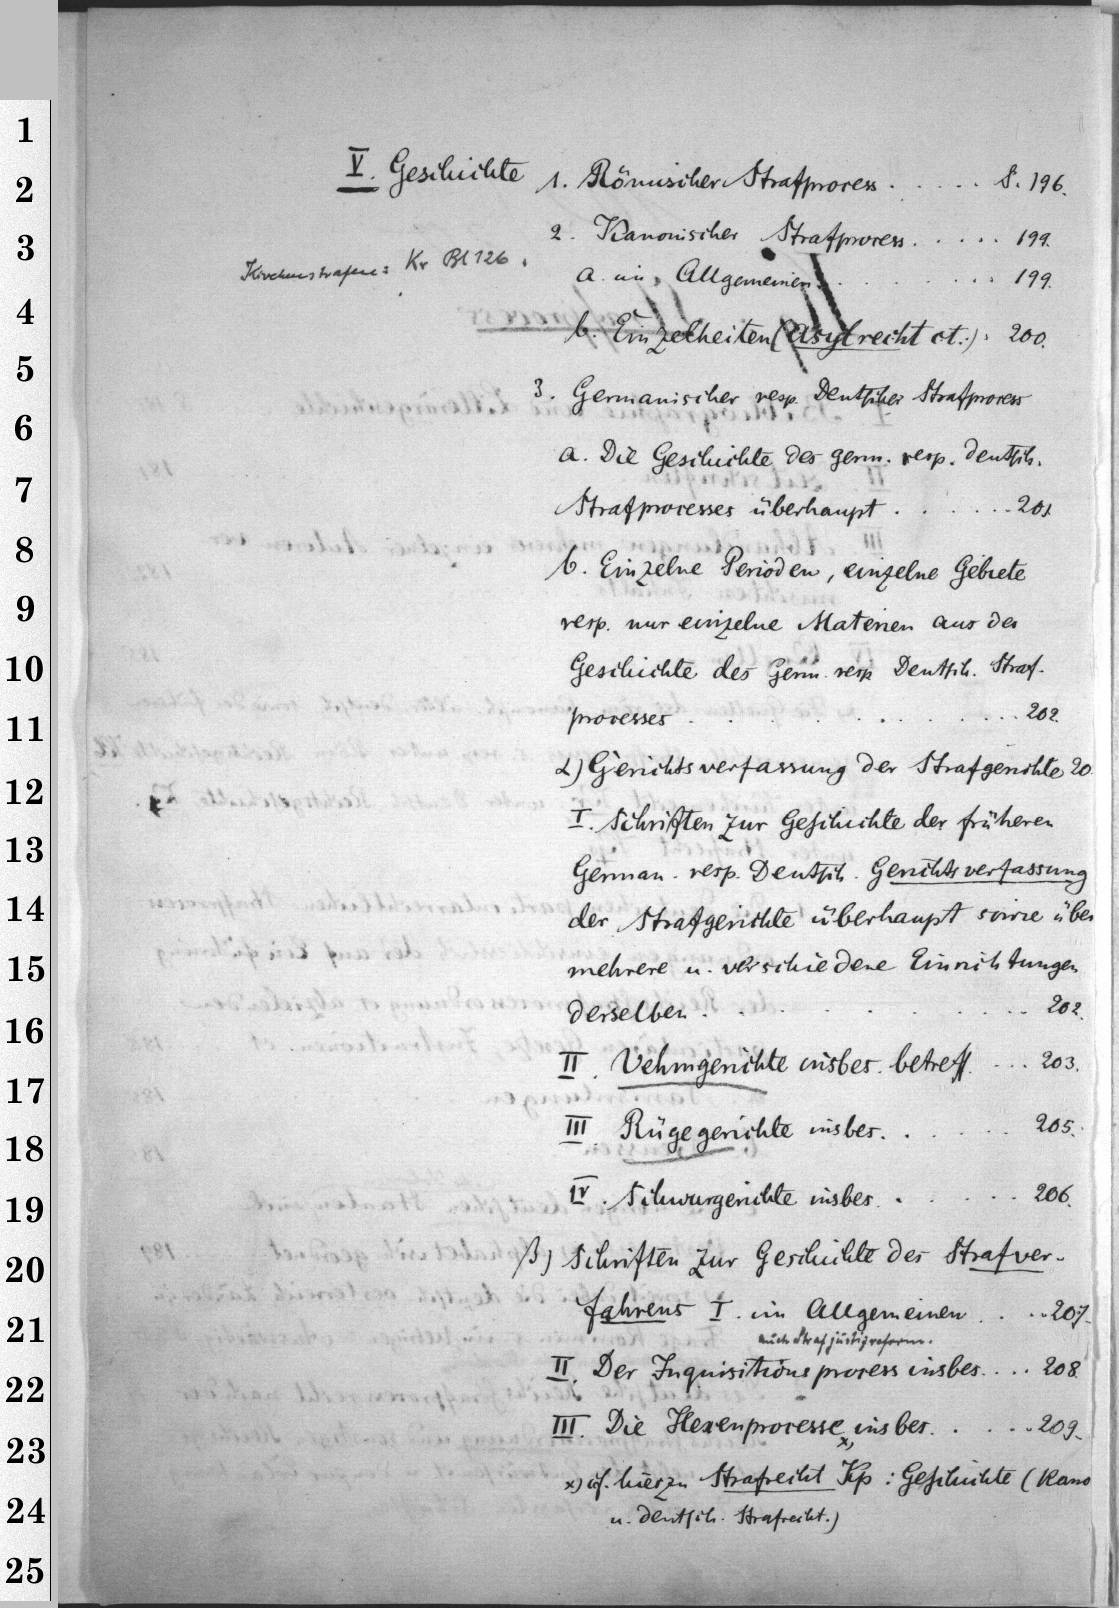 V. Geschichte 1. Römischer Strafprocess . . . . . S. 196.
2. Kanonischer Strafprocess . . . . . 199.
Kirchenstrafen: Kr Bl 126.
a. im Allgemeinen . . . . . . . . 199.
b. Einzelheiten (Asylrecht ct.) . 200.
3. Germanischer resp. Deutscher Strafprocess
a. Die Geschichte des germ. resp. deutsch.
Strafprocesses überhaupt . . . . . . 201
b. Einzelne Perioden, einzelne Gebiete
resp. nur einzelne Materien aus der
Geschichte des Germ. resp Deutsch. Straf-
processes . . . . . . . . . . 202.
α) Gerichtsverfassung der Strafgerichte 20
I. Schriften zur Geschichte der früheren
German. resp. Deutsch. Gerichtsverfassung
der Strafgerichte überhaupt sowie über
mehrere u. verschiedene Einrichtungen
derselben . . . . . . . . . . 202.
II. Vehmgerichte insbes. betreff. . . . 203.
III. Rügegerichte insbes. . . . . . 205.
IV. Schwurgerichte insbes. . . . . . 206.
β) Schriften zur Geschichte des Strafver-
fahrens I. im Allgemeinen . . . . 207.
auch Strafjustizreform.
II. Der Inquisitionsprocess insbes. . . . 208.
III. Die Hexenprocesse x) insbes. . . . . 209.
x) cf. hierzu Strafrecht Kp : Geschichte ( Kano
u. deutsch. Strafrecht.)